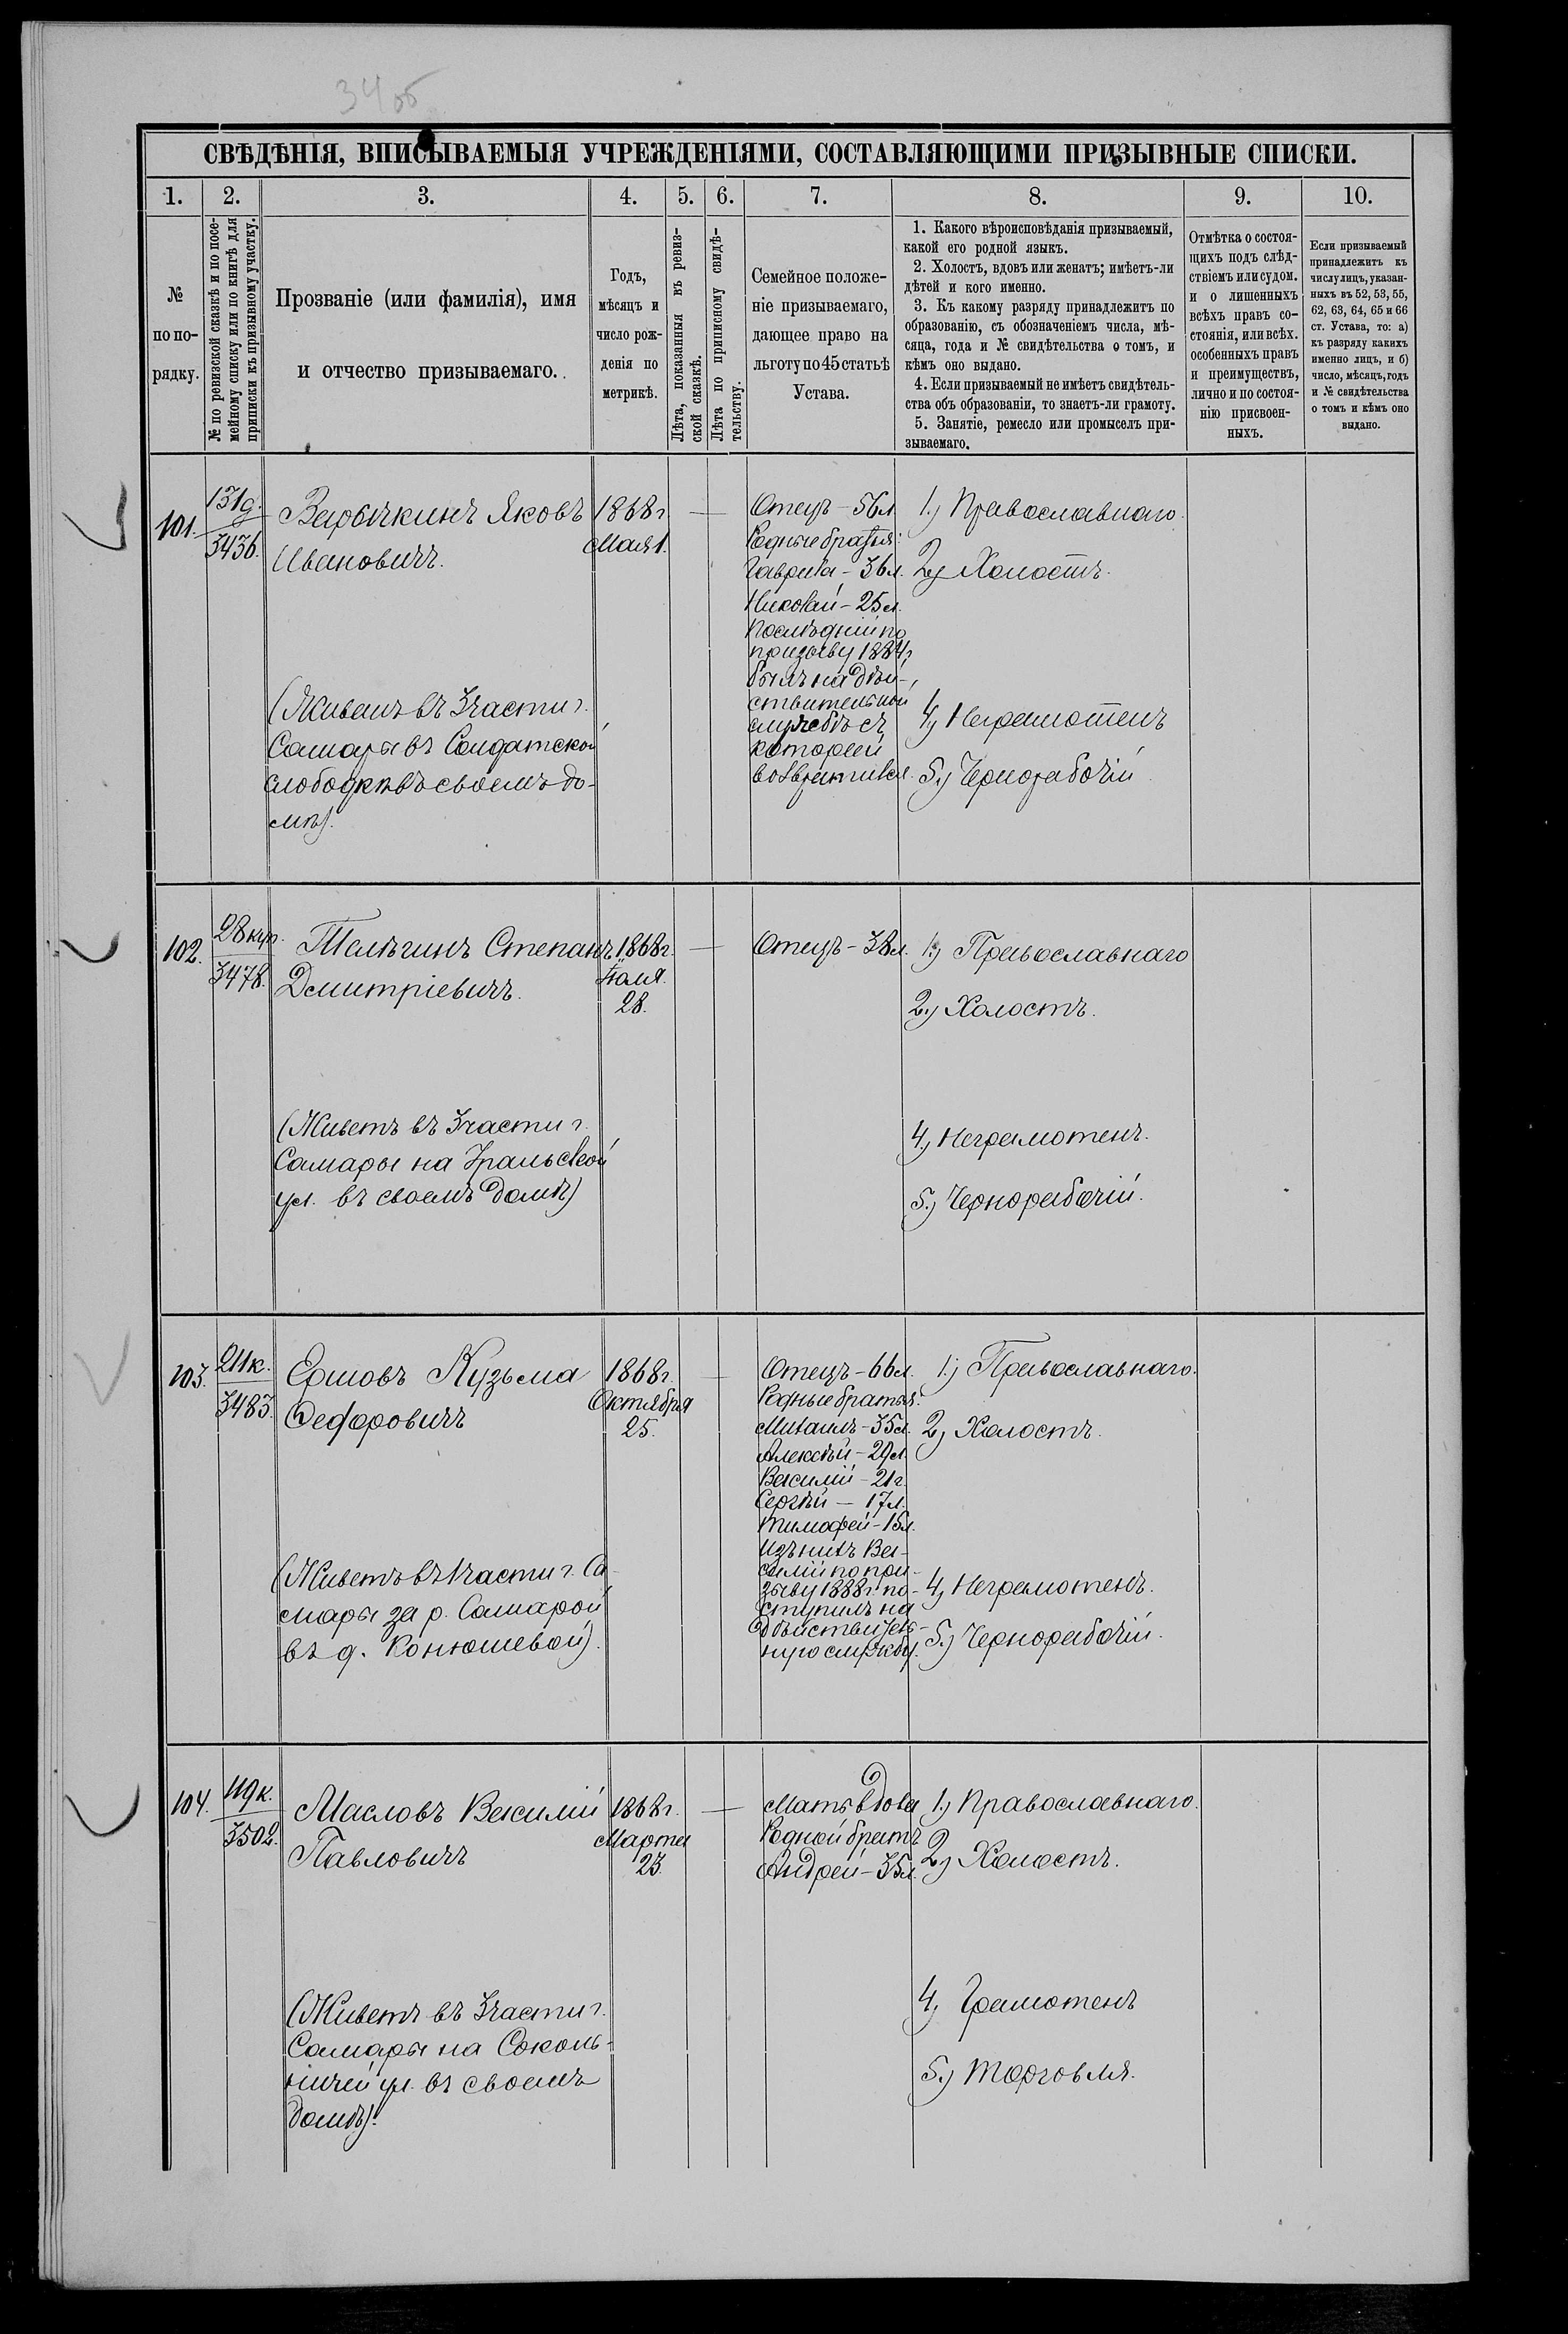 34об
СВѢДѢНІЯ, ВПИСЫВАЕМЫЯ УЧРЕЖДЕНІЯМИ, СОСТАВЛЯЮЩИМИ ПРИЗЫВНЫЕ СПИСКИ.
1.
2.
3.
4.
5.
6.
7.
8.
9.
10.
№
по по-
рядку.
№ по ревизской сказкѣ и по посе-
мейному списку или по книгѣ для
приписки къ призывному участку.
Прозваніе (или фамилія), имя
и отчество призываемаго.
Годъ,
мѣсяцъ и
число рож-
денія по
метрикѣ.
Лѣта, показанныя въ ревиз-
ской сказкѣ.
Лѣта по приписному свидѣ-
тельству.
Семейное положе-
ніе призываемаго,
дающее право на
льготу по 45 статьѣ
Устава.
1. Какого вѣроисповѣданія призываемый,
какой его родной языкъ.
2. Холостъ, вдовъ или женатъ; имѣетъ-ли
дѣтей и кого именно.
3. Къ какому разряду принадлежитъ по
образованію, съ обозначеніемъ числа, мѣ-
сяца, года и № свидѣтельства о томъ, и
кѣмъ оно выдано.
4. Если призываемый не имѣетъ свидѣтель-
ства объ образованіи, то знаетъ-ли грамоту.
5. Занятіе, ремесло или промыселъ при-
зываемаго.
Отмѣтка о состоя-
щихъ подъ слѣд-
ствіемъ или судом.
и о лишенныхъ
всѣхъ правъ со-
стоянія, или всѣх.
особенныхъ правъ
и преимуществъ,
лично и по состоя-
нію присвоен-
ныхъ.
Если призываемый
принадлежитъ къ
числу лицъ, указан-
ныхъ въ 52, 53, 55,
62, 63, 64, 65 и 66
ст. Устава, то: а)
къ разряду какихъ
именно лицъ, и б)
число, мѣсяцъ, годъ
и № свидѣтельства
о томъ и кѣмъ оно
выдано.
101.
131д.
3436.
Яковъ
Ивановичъ.
(Живетъ въ 3 части г.
Самары въ Солдатской
слободкѣ въ своемъ до-
мѣ).
1868 г.
Мая 1.
Отецъ - 56 л.
Родные братья:
Гаврила - 36 л.
Николай - 25 л.
Послѣдній по
призыву 1884 г.
былъ на дѣй-
ствительной
службѣ съ
которой
возвратился.
1.) Православнаго.
2.) Холостъ.
4.) Неграмотенъ
5.) Чернорабочій.
102.
28 кур.
3478.
Телѣгинъ Степанъ
Дмитріевичъ.
(Живетъ въ 3 части г.
Самары на Уральской
ул. въ своемъ домѣ)
1868 г.
Іюля
28.
Отецъ - 38 л.
1.) Православнаго
2.) Холостъ.
4.) Неграмотенъ.
5.) Чернорабочій.
103.
211к.
3483.
Ершовъ Кузьма
Федоровичъ
(Живетъ въ 1 части г. Са-
мары за р. Самарой
въ д. Конюшевой).
1868 г.
Октября
25.
Отецъ - 66 л.
Родные братья:
Михаилъ - 35 л.
Алексѣй - 29 л.
Василій - 21 г.
Сергѣй - 17 л.
Тимофей - 15 л.
Изъ нихъ Ва-
силій по при-
зыву 1888 г. по-
ступилъ на
дѣйствитель-
ную службу.
1.) Православнаго.
2.) Холостъ.
4.) Неграмотенъ.
5.) Чернорабочій.
104.
119к.
3502.
Масловъ Василій
Павловичъ
(Живетъ въ 3 части г.
Самары на Соколь-
ничей ул. въ своемъ
домѣ).
1868 г.
Марта
23.
Мать вдова
Родной братъ
Андрей - 35 л.
1.) Православнаго.
2.) Холостъ.
4.) Грамотенъ
5.) Торговля.